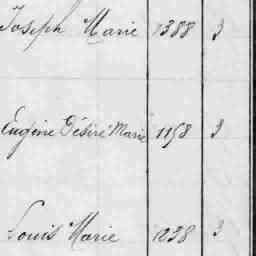 Joseph Marie 1388 3
Eugène Désiré Marie 1158 3
Louis Marie 1238 3